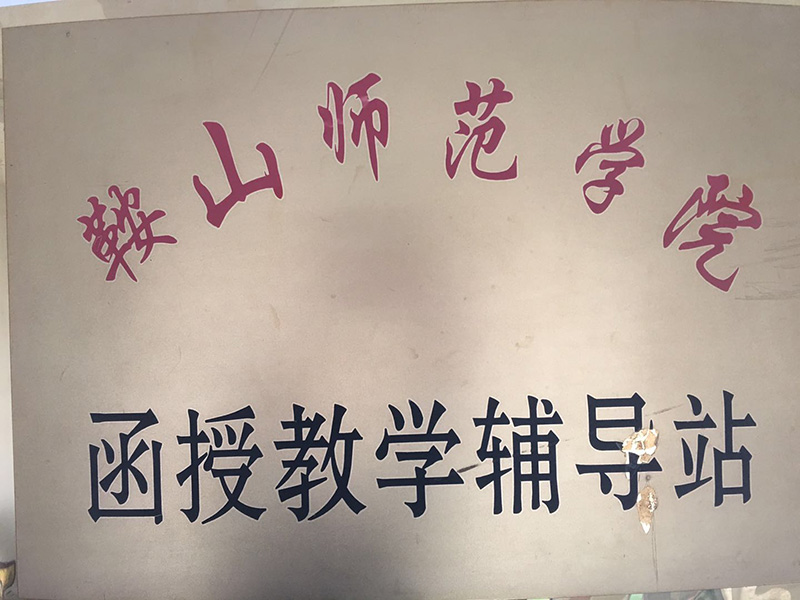 鞍山师范学院
函授教学辅导站